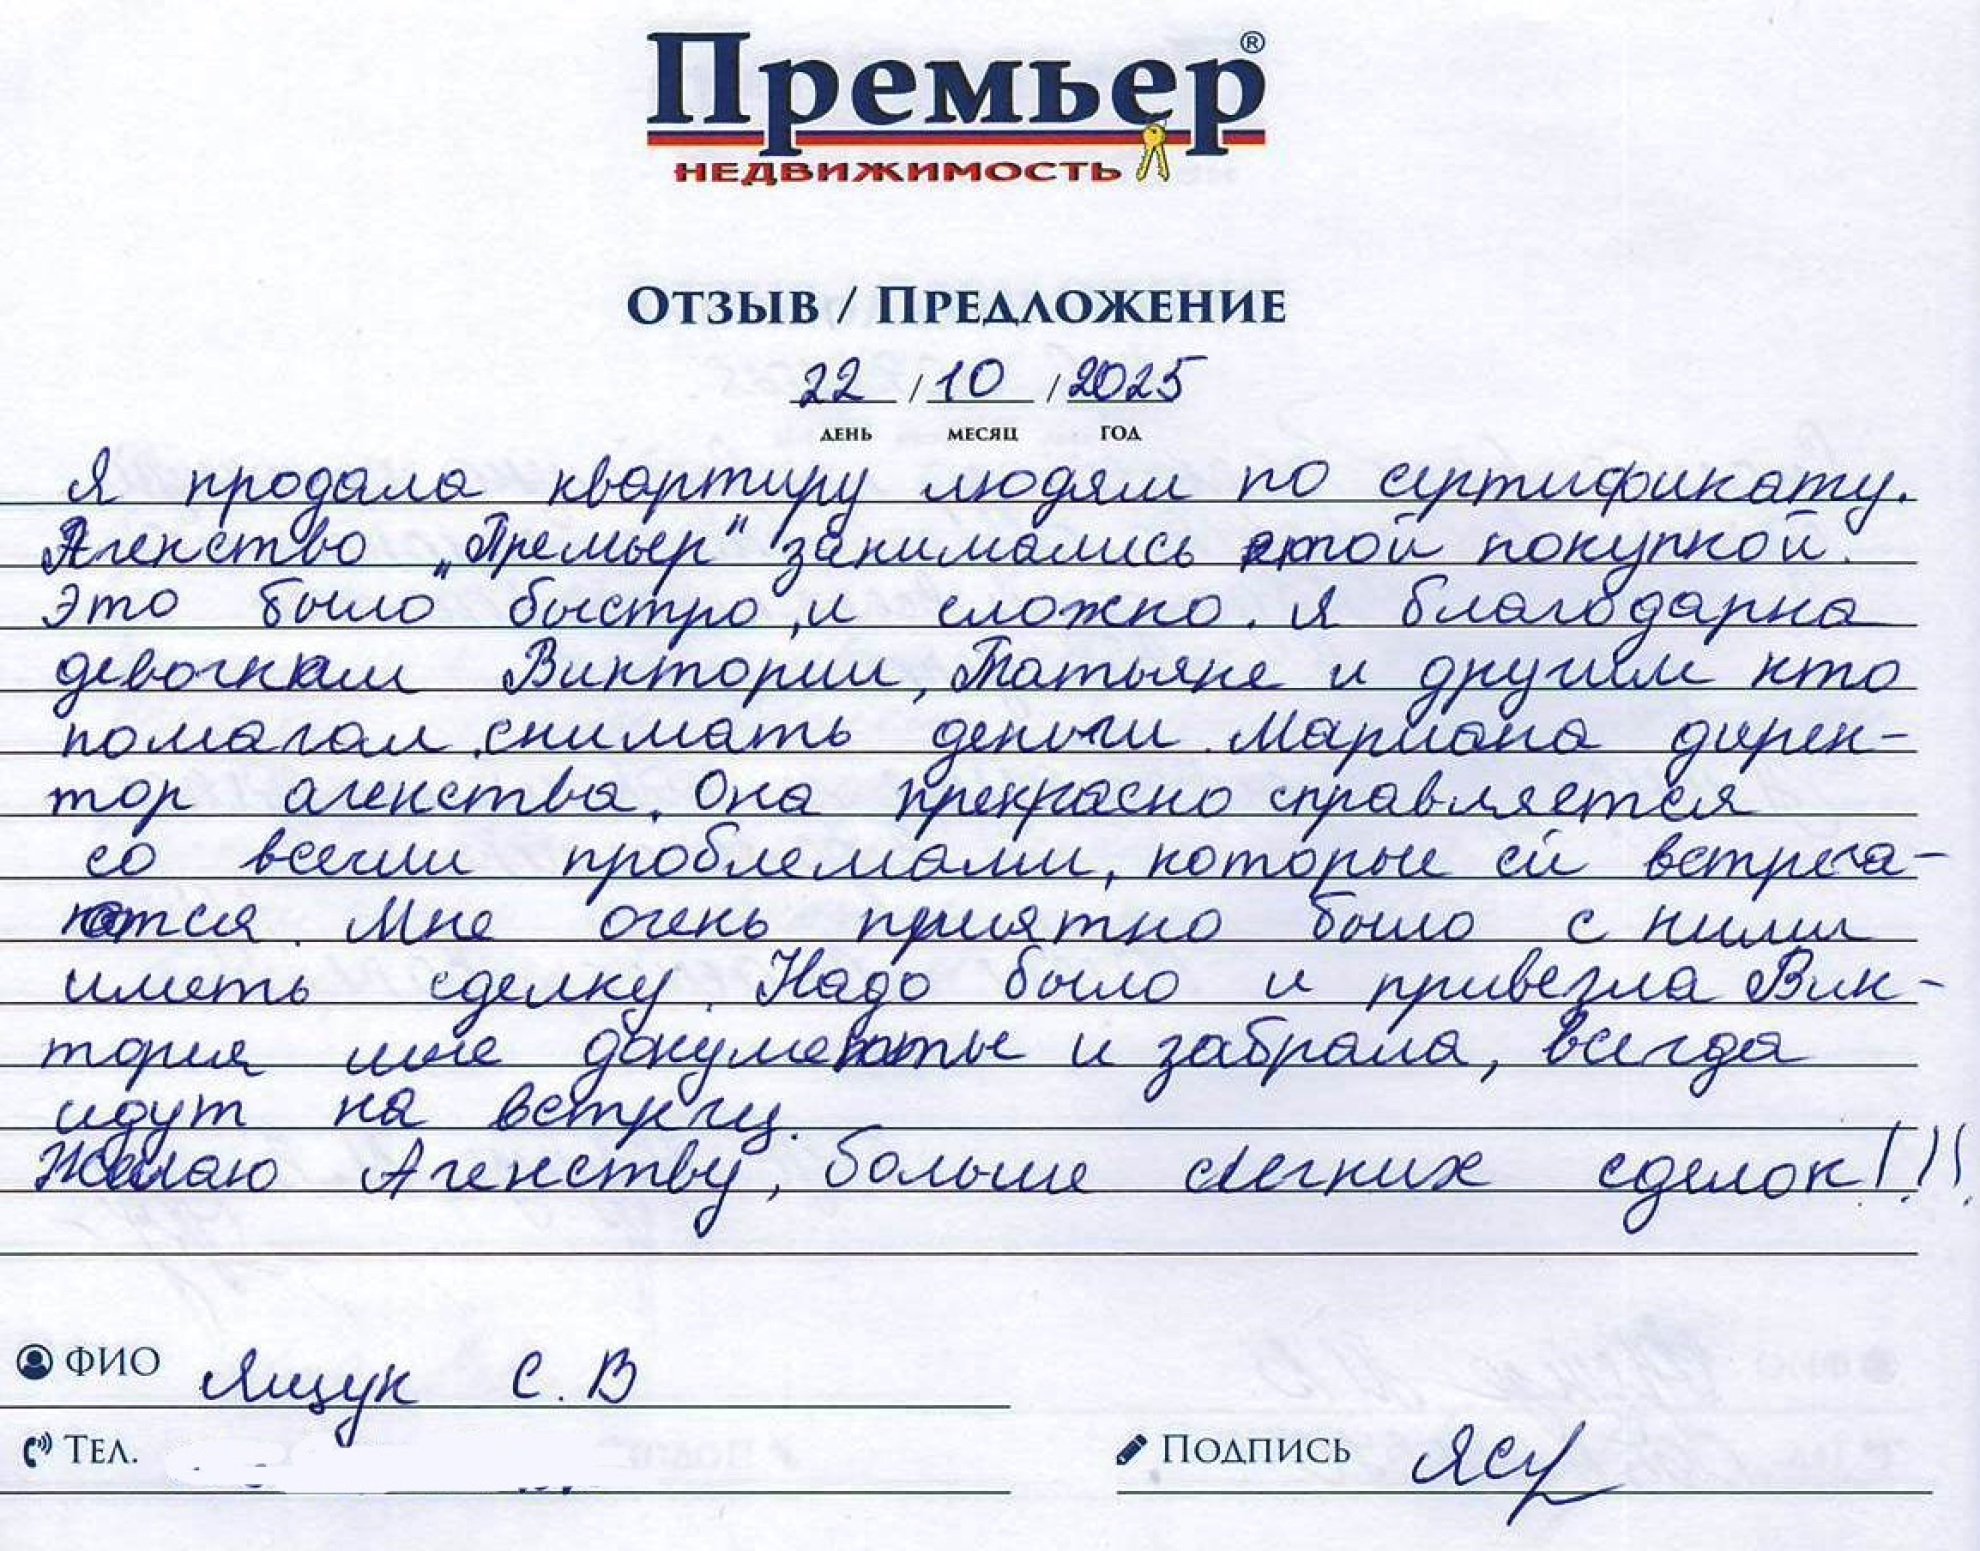 Премьер®
НЕДВИЖИМОСТЬ
ОТЗЫВ / ПРЕДЛОЖЕНИЕ
22 / 10 / 2025
ДЕНЬ МЕСЯЦ ГОД
Я продала квартиру людям по сертификату.
Агенство „Премьер" занимались этой покупкой.
Это было быстро, и сложно. Я благодарна
девочкам Виктории, Татьяне и другим кто
помагал снимать деньги. Мариана дирек-
тор агенства. Она прекрасно справляется
со всеми проблемами, которые ей встреча-
ются. Мне очень приятно было с ними
иметь сделку. Надо было и привезла Вик-
тория мне документы и забрала, всегда
идут на встречу.
Желаю Агенству, больше легких сделок!!!
ФИО Ящук С. В
ТЕЛ.
ПОДПИСЬ